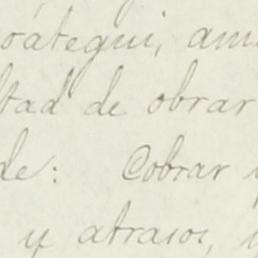 oátegui, am
ltad de obrar
de: Cobrar y
y atrasos, y